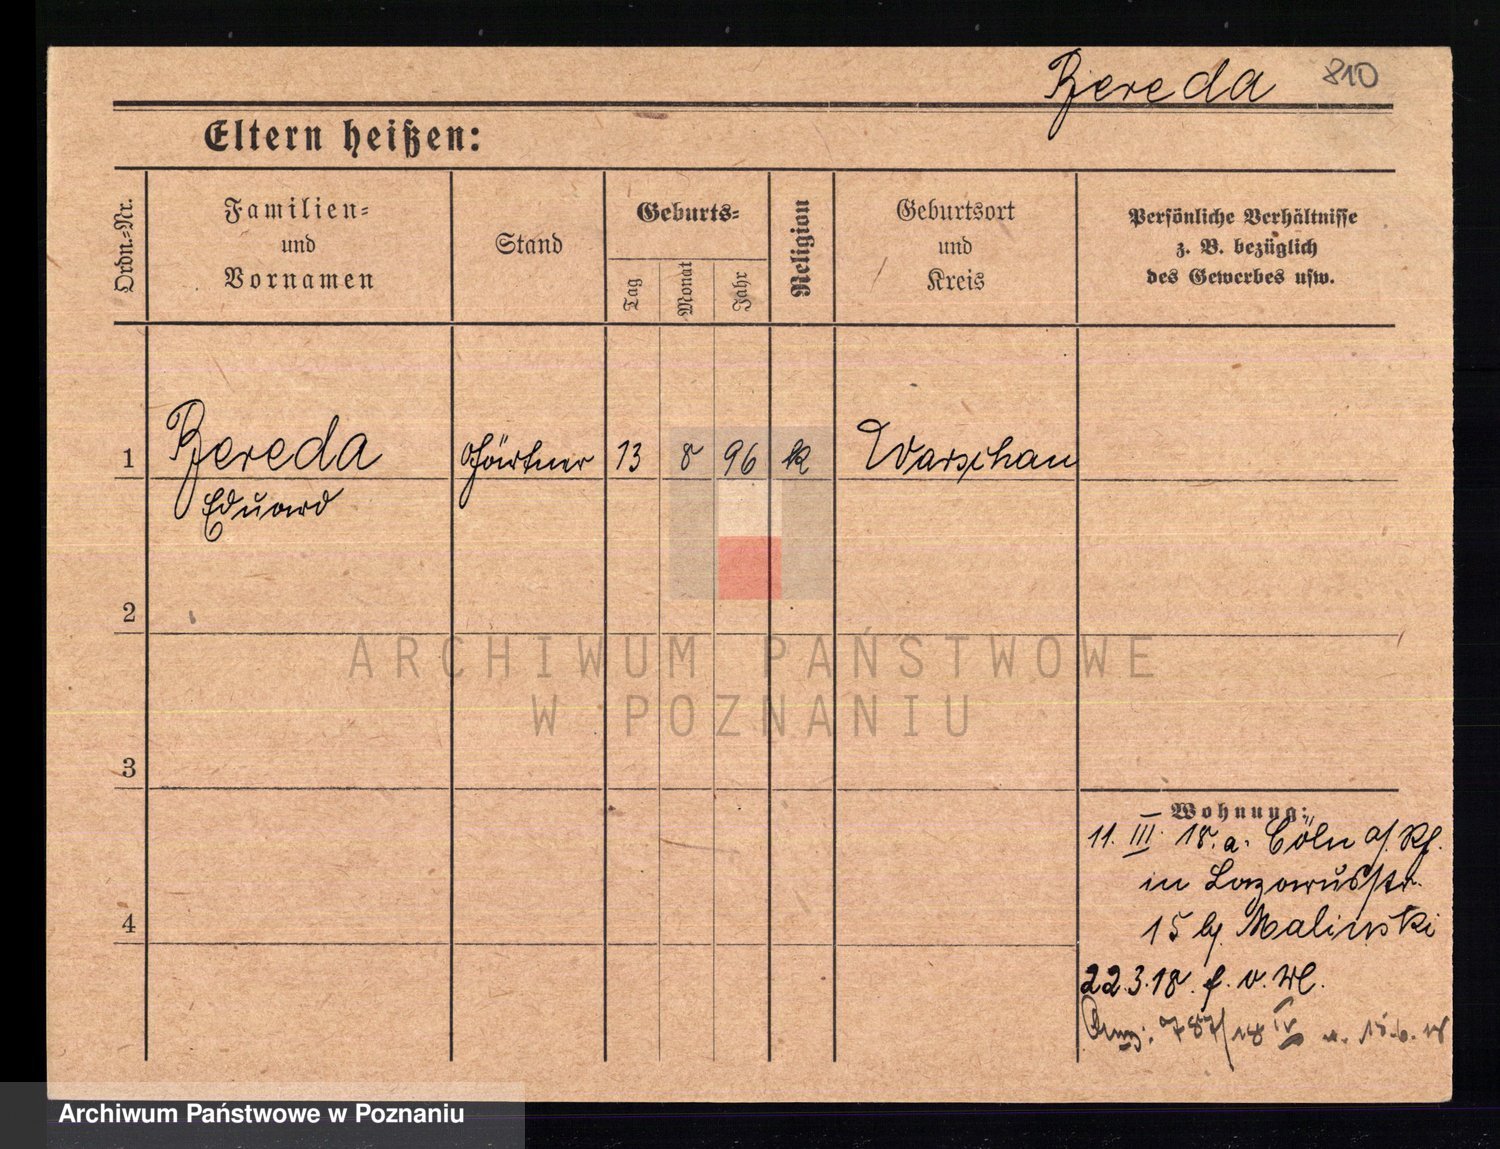 Bereda 810
Eltern heißen:
Ordn.-Nr.
Familien-
und
Vornamen
Stand
Geburts-
Tag
Monat
Jahr
Religion
Geburtsort
und
Kreis
Persönliche Verhältnisse
z. B. bezüglich
des Gewerbes usw.
1 Bereda Gärtner 13 8 96 k Warschau
Eduard
2
3
4
Wohnung:
11. III. 18. a. Cöln a/Rh.
in Lazarusstr.
15 bei Malinski
22.3.18. f. v. Wl.
787/18 IV
ARCHIWUM PAŃSTWOWE
W POZNANIU
Archiwum Państwowe w Poznaniu